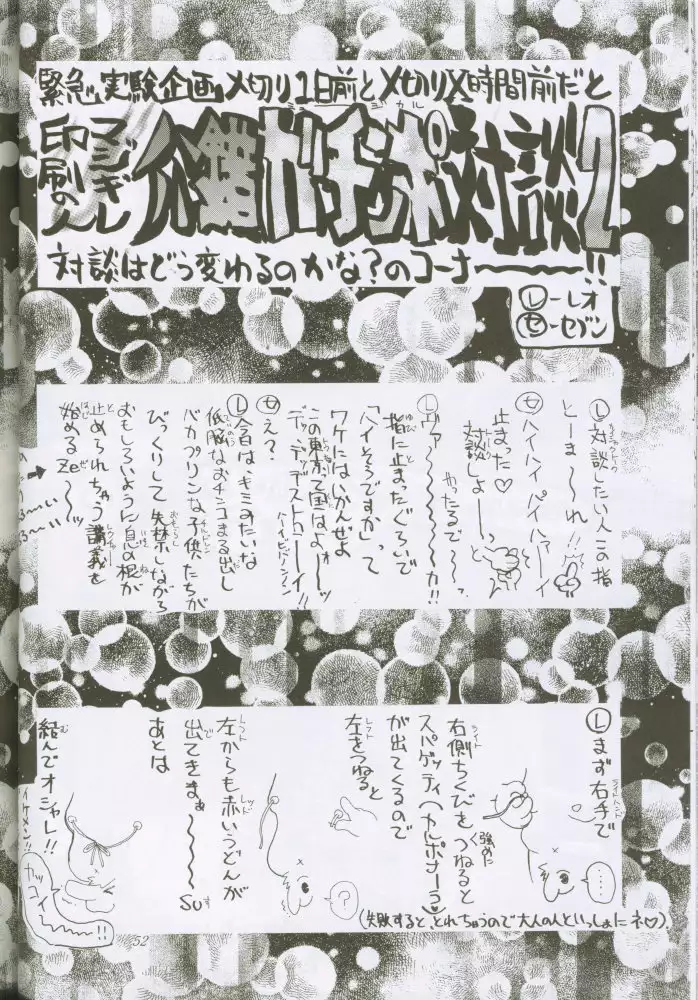 緊急実験企画〆切り1日前と〆切りX時間前だと
印刷の人
マジギレ
介錯ガチンポ対談2
ジーンジカル
対談はどう変わるのかな?のコーナー〜〜〜!!
Ⓛーレオ
セーセブン
Ⓛ対談したい人この指
とーま〜〜れ!!
セハイハイパイハァーイ
止まった♡
対談しよーーっ
Ⓛヴァ〜〜〜〜〜カ!!
やったるで〜〜〜っ
指に止まったぐらいで
「ハイそうですか」って
ワケにはいかんぜよ
この東京って国はよォ〜〜ッ
デッ、デッデストローイ!!
セえ?
Ⓛ今日はキミみたいな
低脳なおチンコまる出し
バカプリンな子供たちが
びっくりして失禁しながら
おもしろいように息の根が
止められちゃう講義を
始めるZe〜〜〜ッ
Ⓛまず右手で
右側ちくびをつねると
強めだ
スパゲッティ(カルボナーラ)
が出てくるので
左をつねると
左からも赤いうどんが
出てきまぁ〜〜〜〜su
あとは
結んでオシャレ!!
イケメン!!
カッコイ〜〜〜〜!!
……
?
(失敗すると、とれちゃうので大人の人といっしょにネ♡)
52